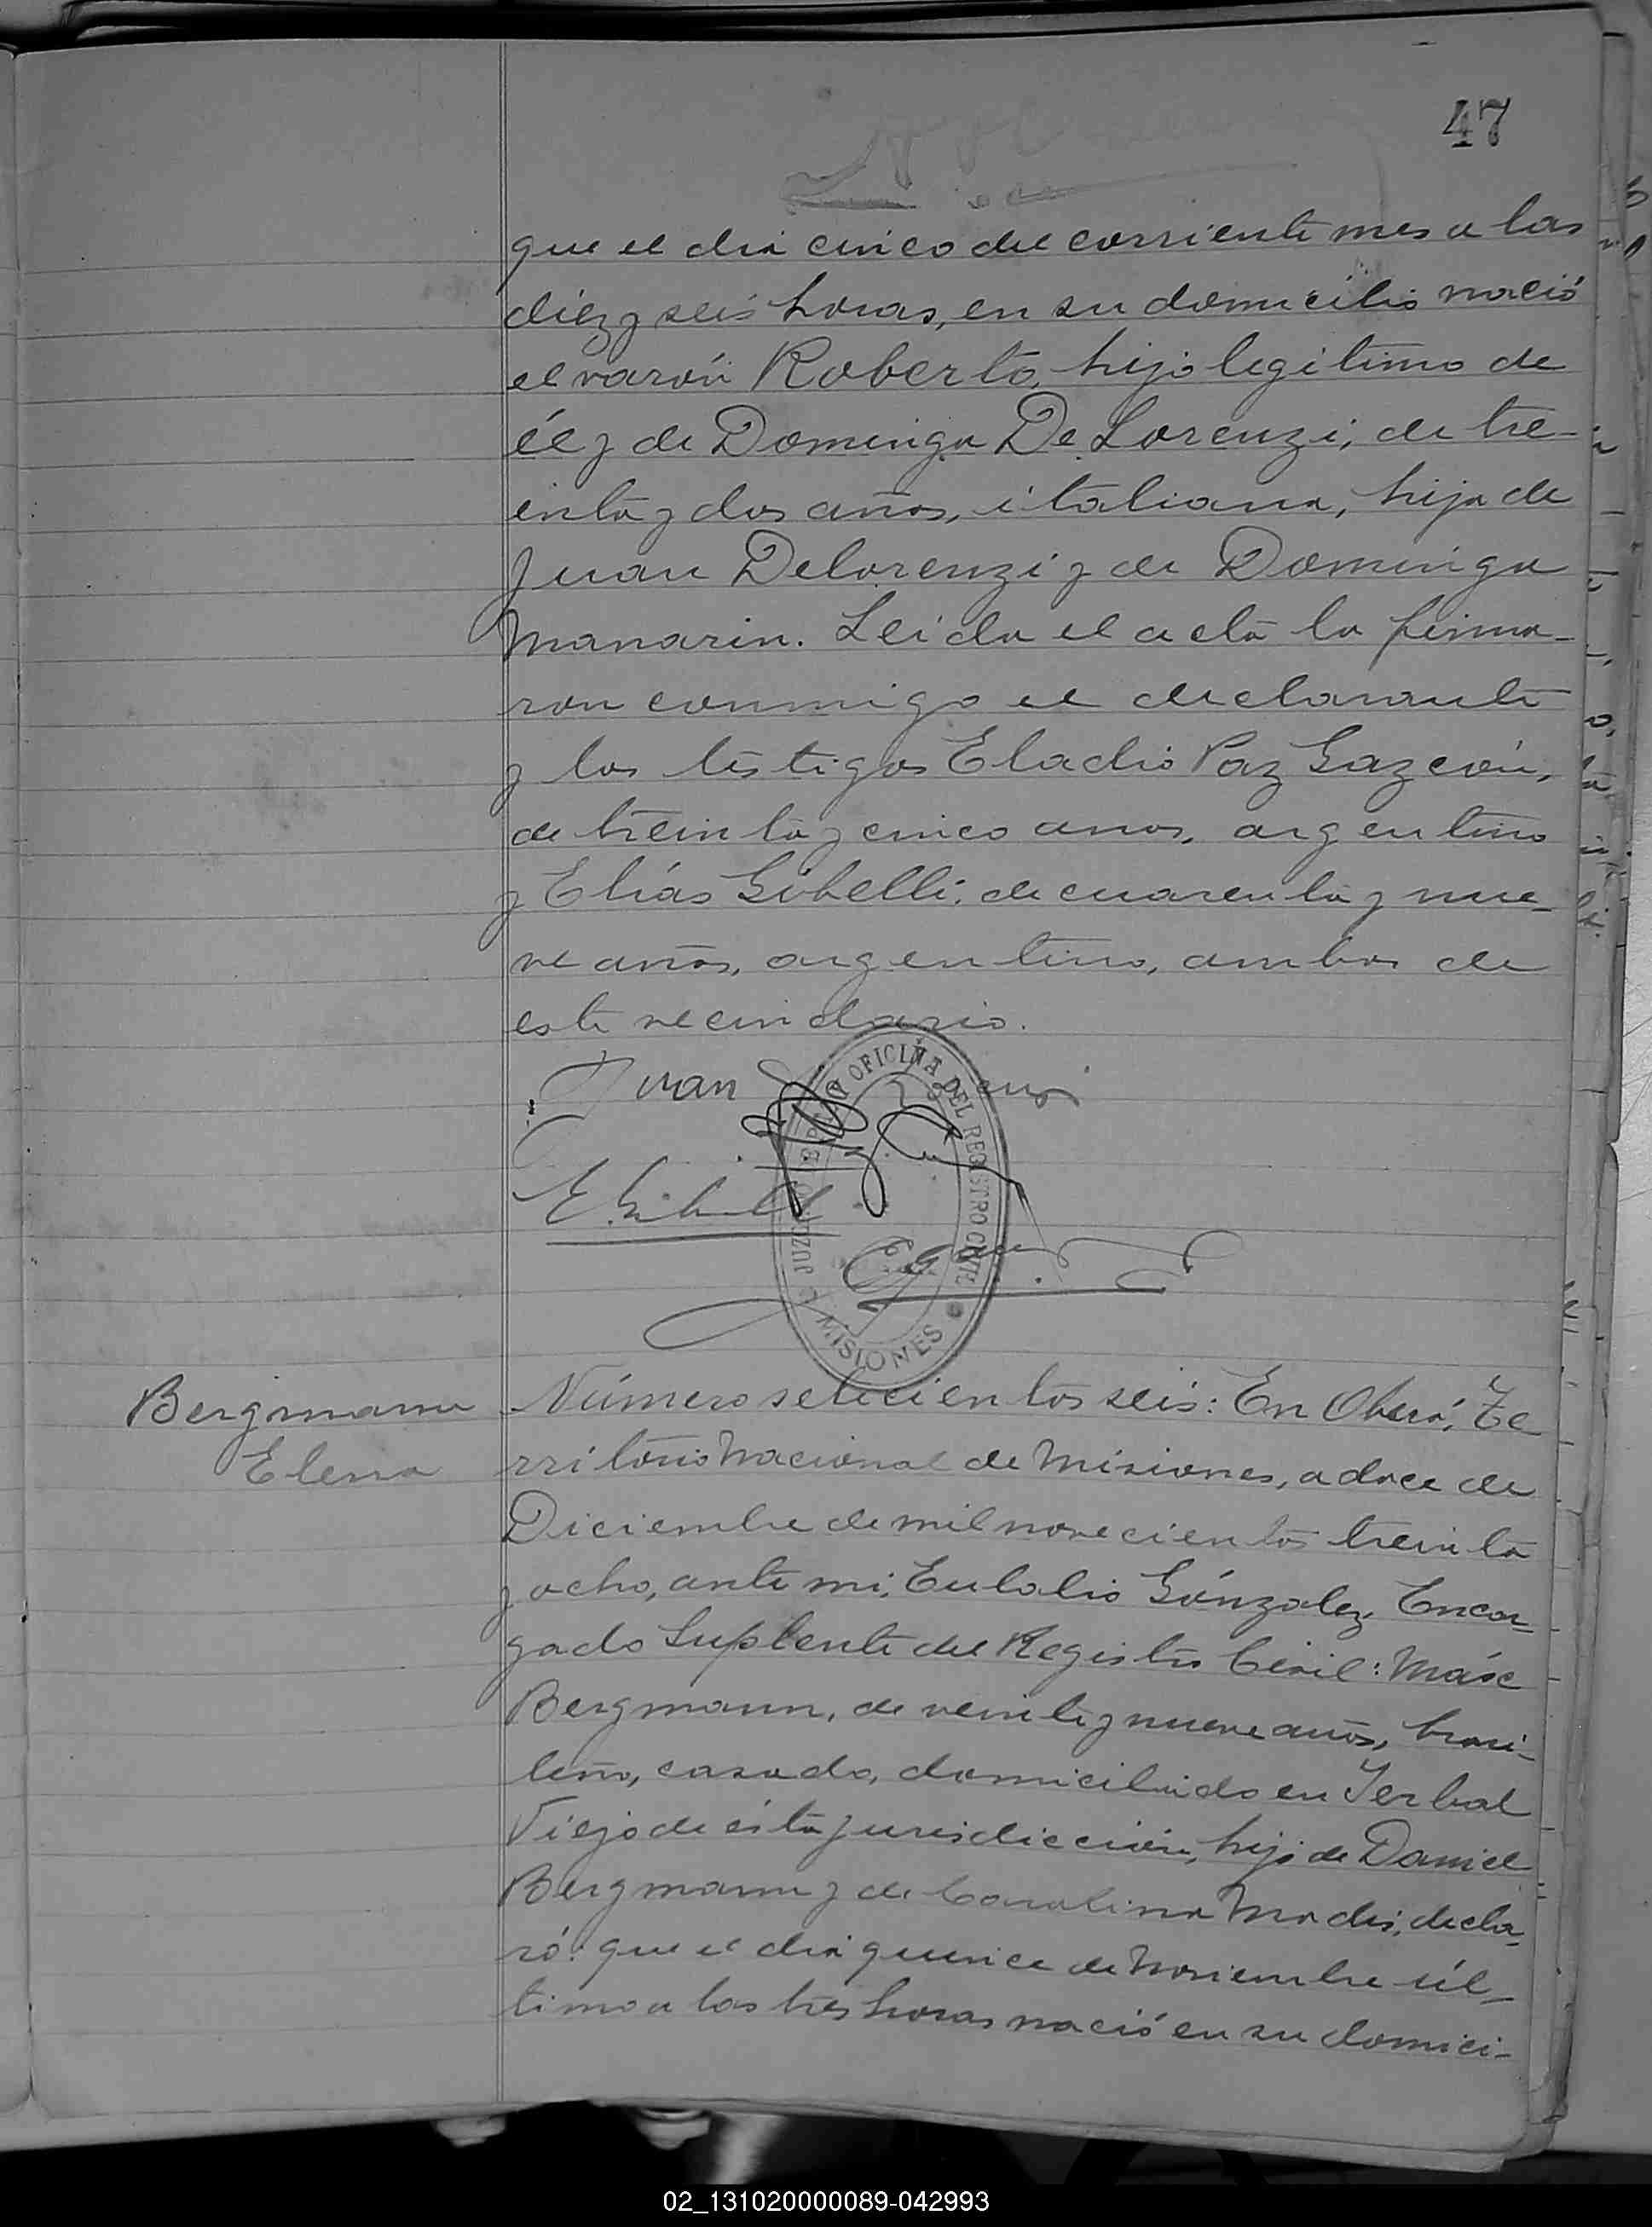 47
que el dia cinco del corriente mes a las
diez y seis horas, en su domicilio nació
el varón Roberto, hijo legitimo de
él y de Dominga De Lorenzi, de tre-
inta y dos años, italiana, hija de
Juan Delorenzi y de Dominga
Manarin. Leida el acta la firma-
ron conmigo el declarante
y los testigos Eladio Paz Gazcón,
de treinta y cinco anos, argentino
y Elías Gibelli, de cuarenta y nue-
ve años, argentino, ambos de
este vecindario.
Juan
E. Gibelli
JUZGADO DE PAZ Y OFICINA DEL REGISTRO CIVIL
MISIONES
Bergmann
Elena
Número setecientos seis: En Oberá, Te
rritorio Nacional de Misiones, a doce de
Diciembre de mil novecientos treinta
y ocho, ante mi, Eulalio Gónzalez, Encar-
gado Suplente del Registro Civil: Máx
Bergmann, de veinte y nueve años, brasi-
leño, casado, domiciliado en Yerbal
Viejo de ésta jurisdicción, hijo de Daniel
Bergmann y de Carolina decla-
ró: que el dia quince de Noviembre úl-
timo a las tres horas nació en su domici-
02_131020000089-042993